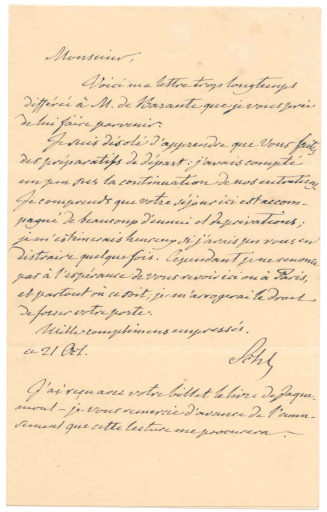 Monsieur,
Voici ma lettre trop longtemps
différée à M. de Barante que je vous prie
de lui faire parvenir.
Je suis désolé d'apprendre que vous faites
des préparatifs de départ: j'avais compté
un peu sur la continuation de nos entretiens.
Je comprends que votre séjour ici est accom-
pagné de beaucoup d'ennui et de privations;
je m'estimerais heureux, si j'avais pu vous en
distraire quelque fois. Cependant je ne renonce
pas à l'espérance de vous revoir ici ou à Paris,
et partout où ce soit, je m'arrogerai le droit
de forcer votre porte.
Mille complimens empressés.
ce 21 Oct.
Schl
J'ai reçu avec votre billet le livre de Jaque-
mont – je vous remercie d'avance de l'amu-
sement que cette lecture me procurera.